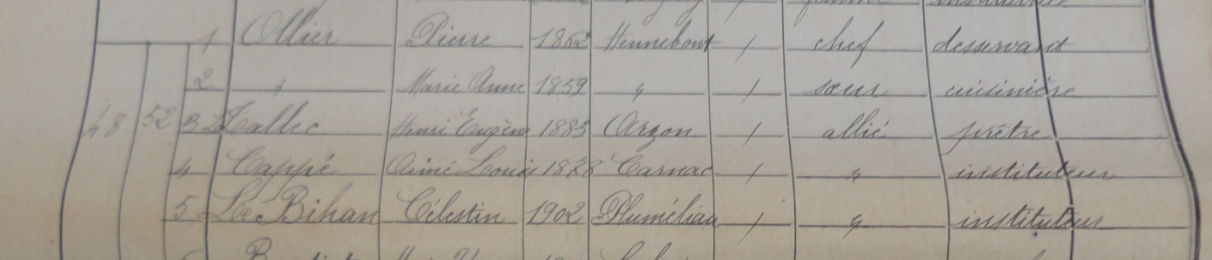 1 Ollier Pierre 1862 Hennebont / chef desservant
2 " Marie Anne 1859 " / sœur cuisinière
48 52 3 Tallec Henri Eugène 1883 Arzon / allié prêtre
4 Cappé Aimé Louis 1878 Carnac / " instituteur
5 Le Bihan Célestin 1902 Pluméliau / " instituteur